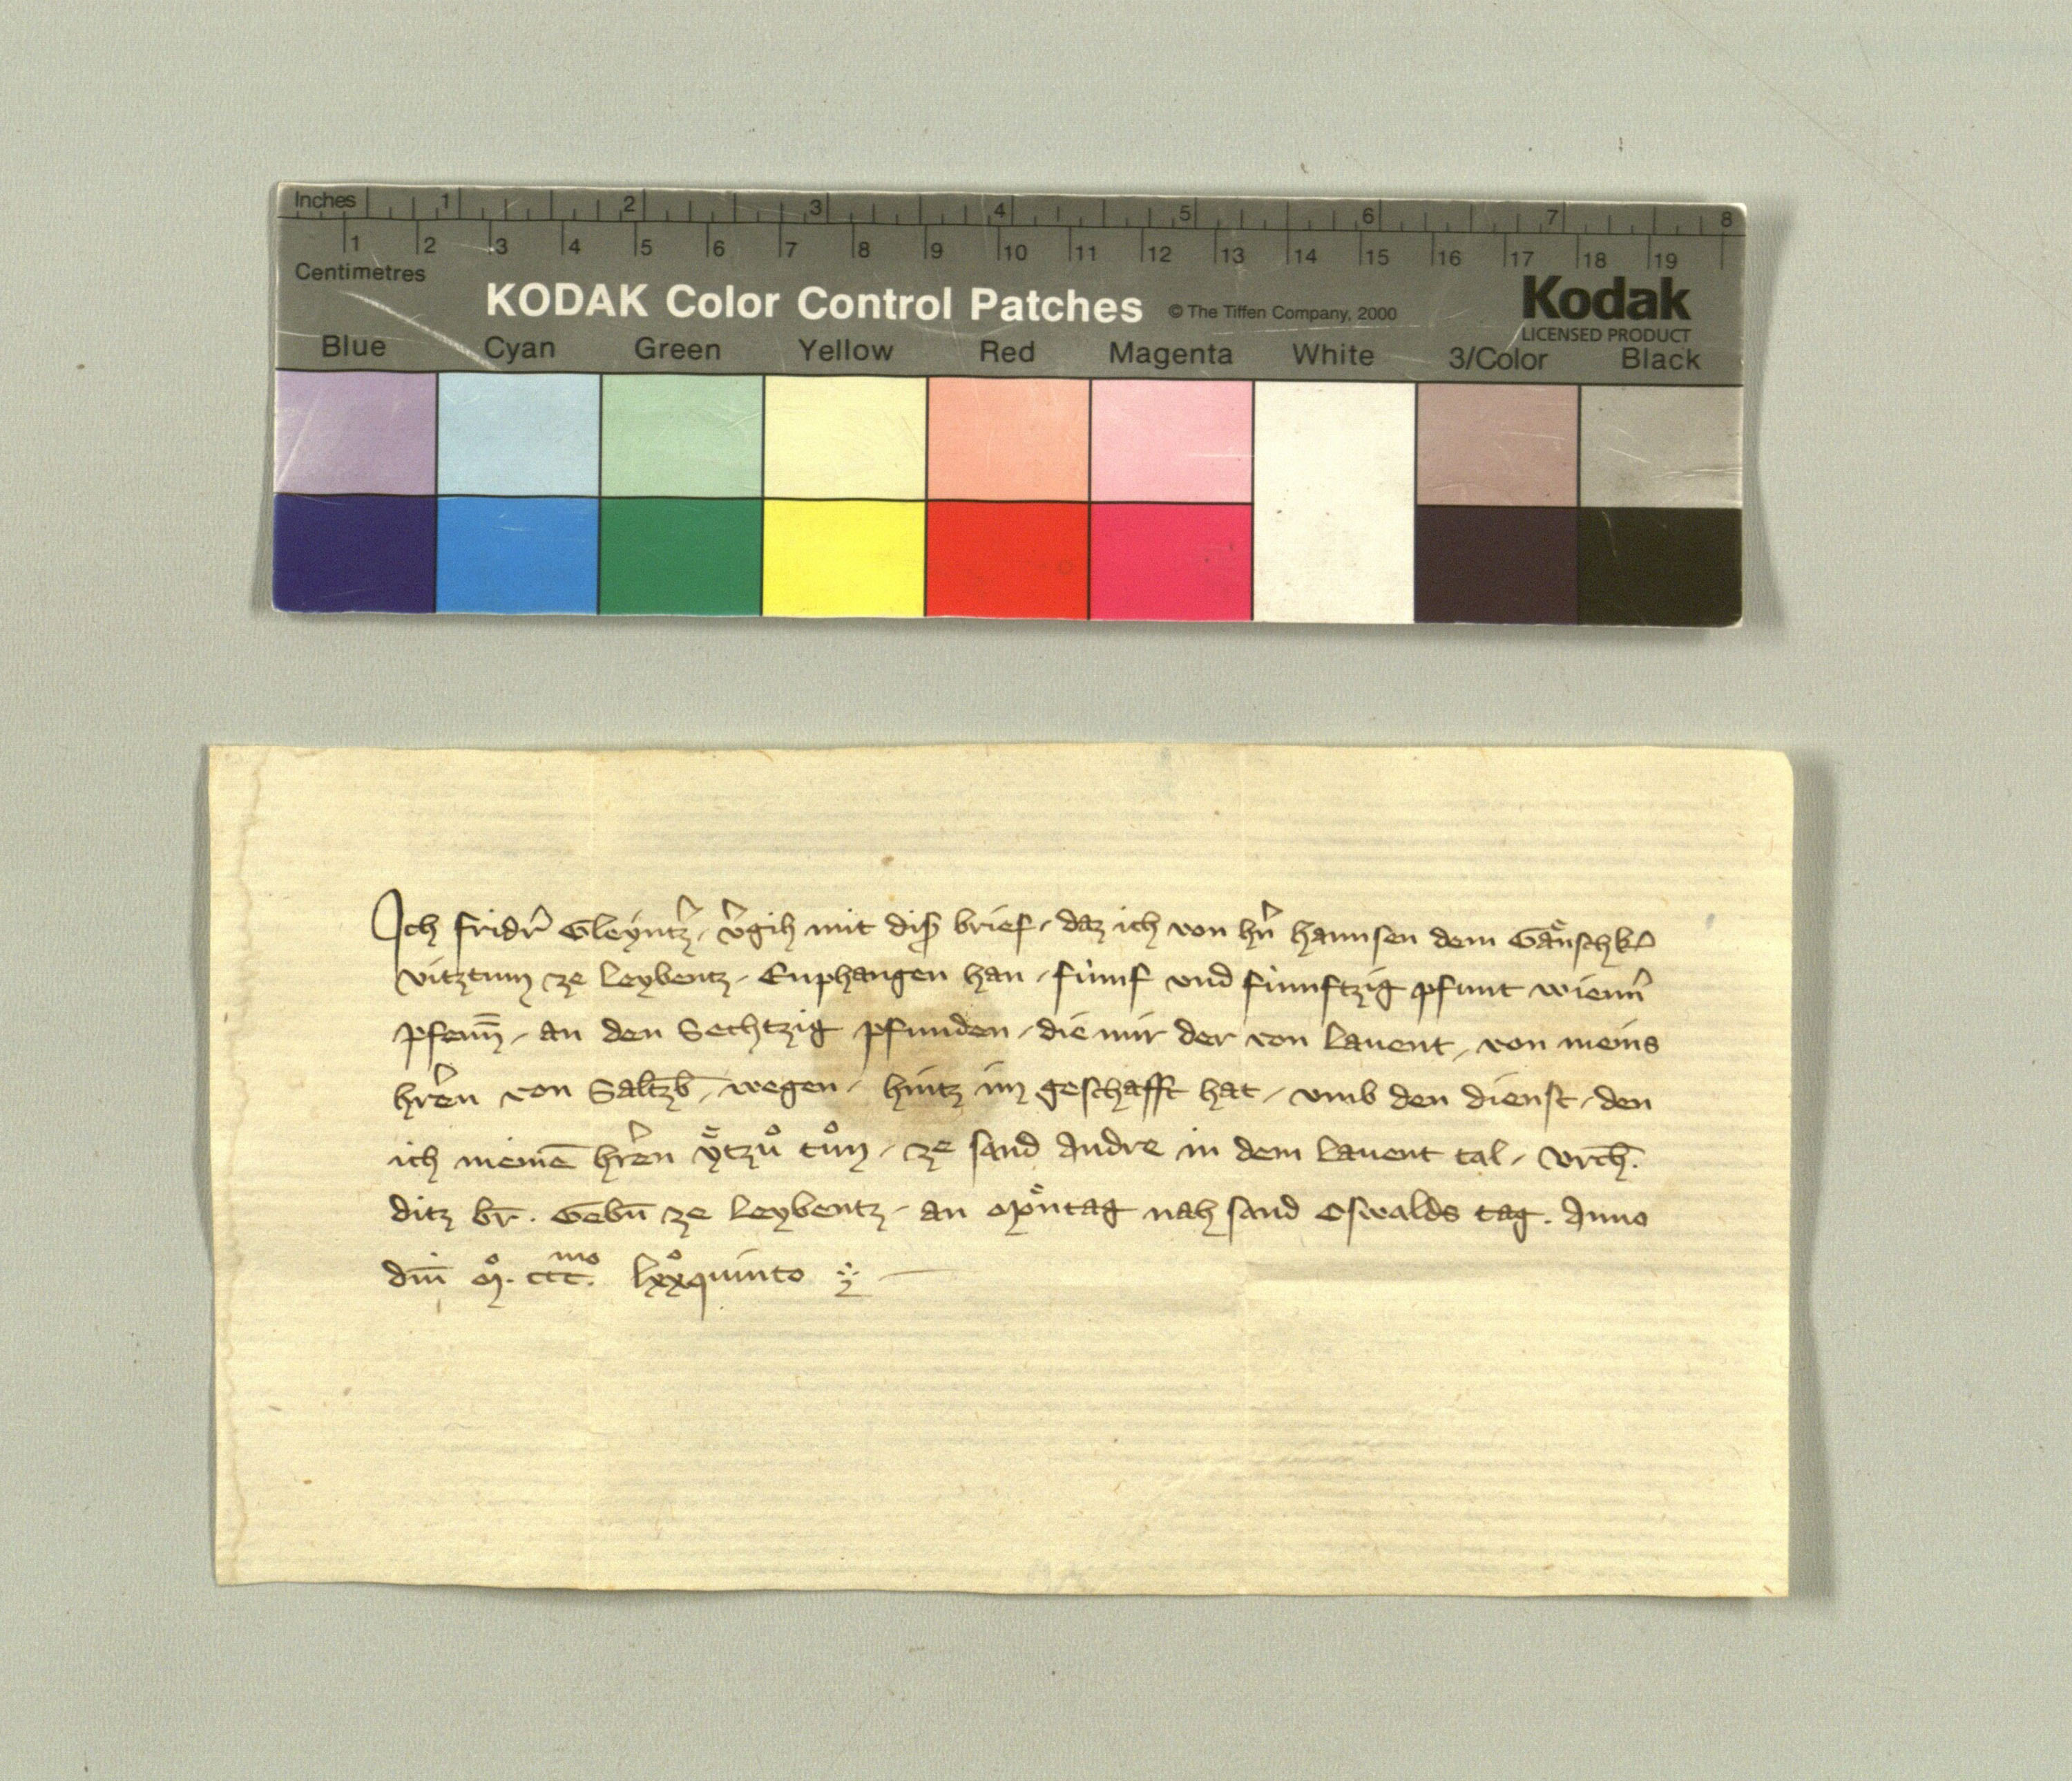 Inches 1 2 3 4 5 6 7 8
1 2 3 4 5 6 7 8 9 10 11 12 13 14 15 16 17 18 19
Centimetres
KODAK Color Control Patches © The Tiffen Company, 2000 Kodak
LICENSED PRODUCT
Blue Cyan Green Yellow Red Magenta White 3/Color Black
Ich fridr̄ Gleyntz̄, v̄gih mit dis̄ brief, daz ich von hn̄ hannsen dem
vitztum ze Leybentz, Enphangen han, fùmf vnd fùnnftzig pfunt wienn̄
pfenn̄, an den Sechtzig pfunden, die mir der von Lauent, von meins
hr̄en von Saltzb̄, wegen, hintz im geschafft hat, vmb den dienst, den
ich meinē hr̄en tůn, ze sand Andre in dem Lauent tal, vrch̄.
ditz br̄. Gebn̄ ze Leybentz, an Mͤntag nah sand Oswalds tag. Anno
dni̅ mͦ. ccc.ᵐᵒ lxxͦquinto